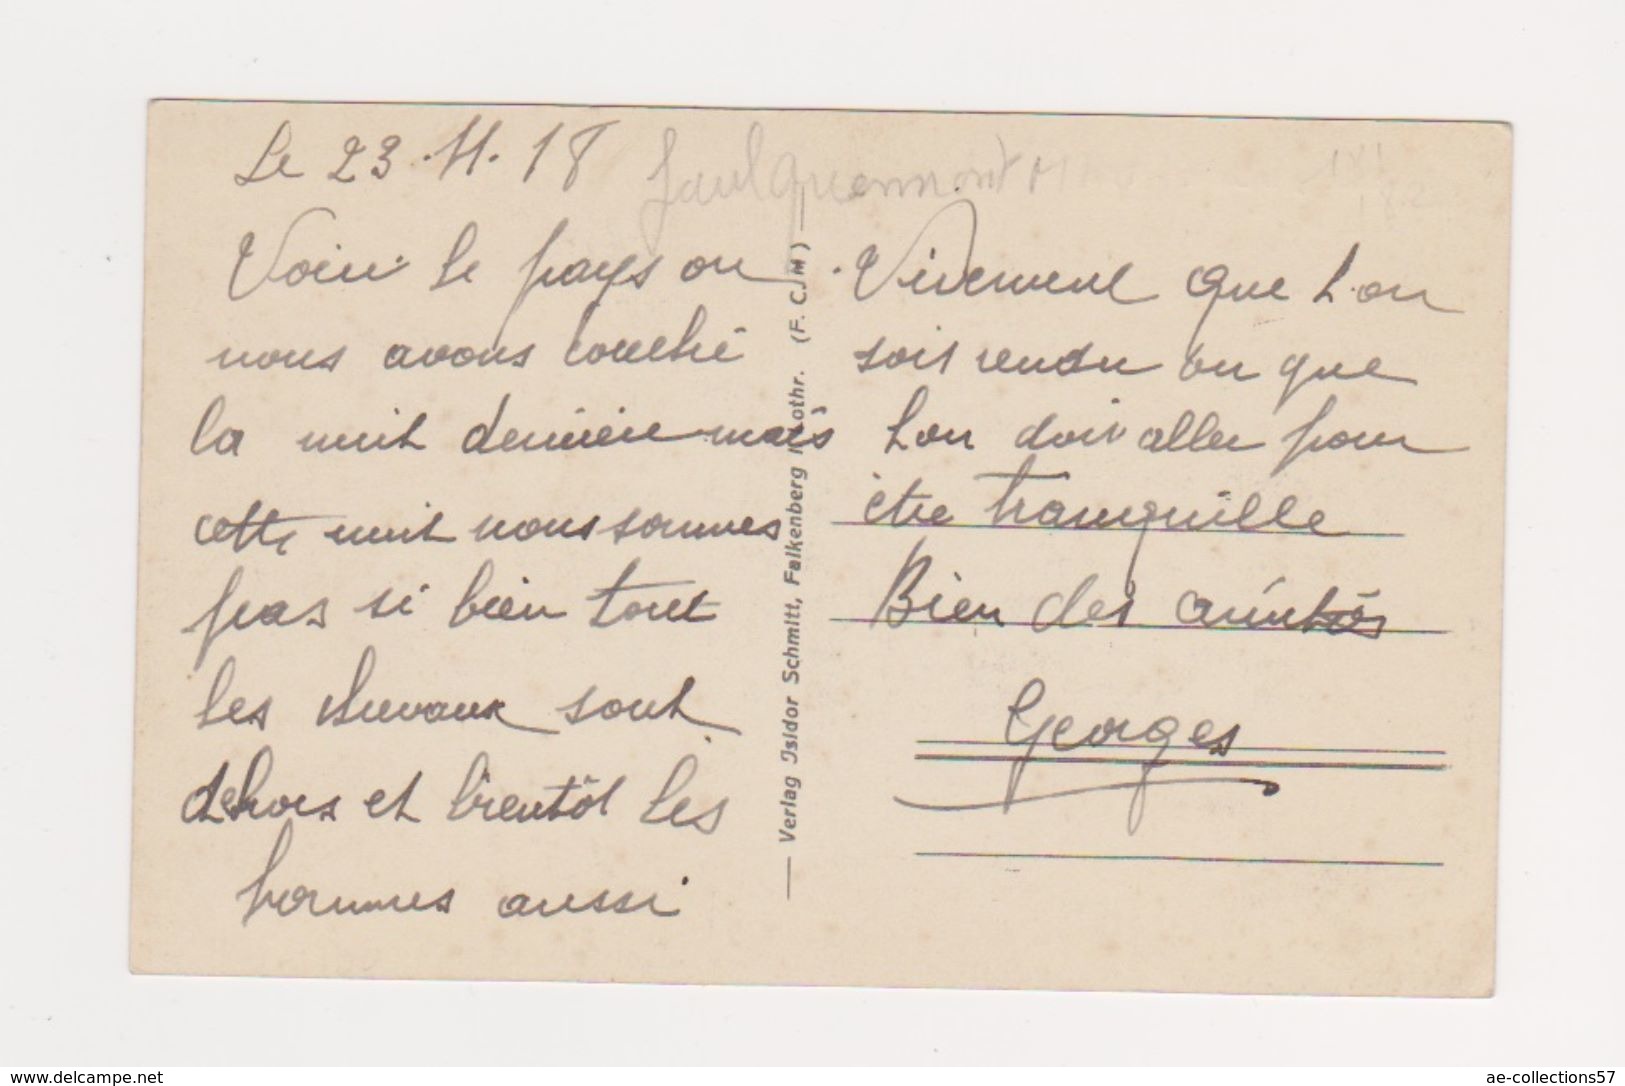 Le 23.11.18
Voici le pays ou
nous avons couché
la nuit dernière mais
cette nuit nous sommes
pas si bien tout
les chevaux sont
dehors et bientôt les
hommes aussi
Verlag Jsidor Schmitt, Falkenberg i. Lothr. (F. C. M)
Vivement que l'on
soit rendu ou que
l'on doit aller pour
être tranquille
Bien des amitiés
Georges
www.delcampe.net
ae-collections57